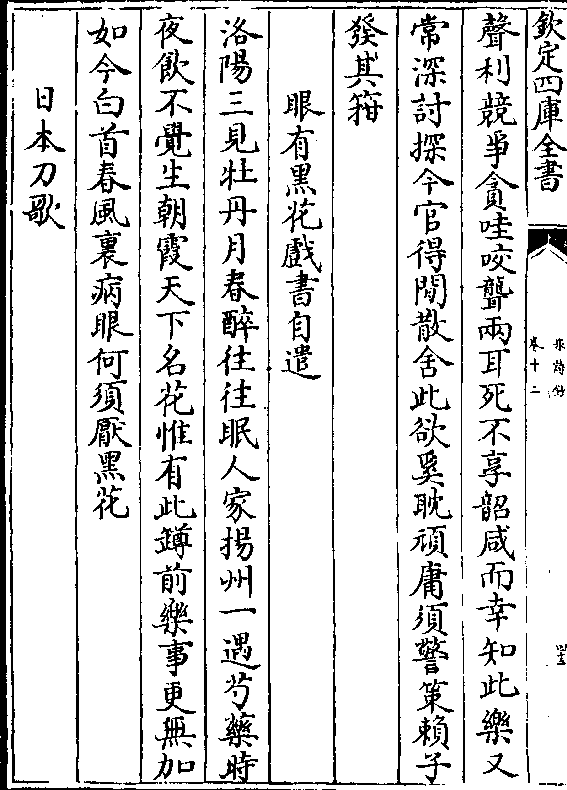 欽定四庫全書
卷十二
聲利競爭貪哇咬聾兩耳死不享韶咸而幸知此樂又
常深討探今官得閒散舍此欲奚耽頑庸須警策賴子
發其箝
眼有黑花戲書自遣
洛陽三見牡丹月春醉往往眠人家揚州一遇芍藥時
夜飲不覺生朝霞天下名花惟有此罇前樂事更無加
如今白首春風裏病眼何須厭黑花
日本刀歌